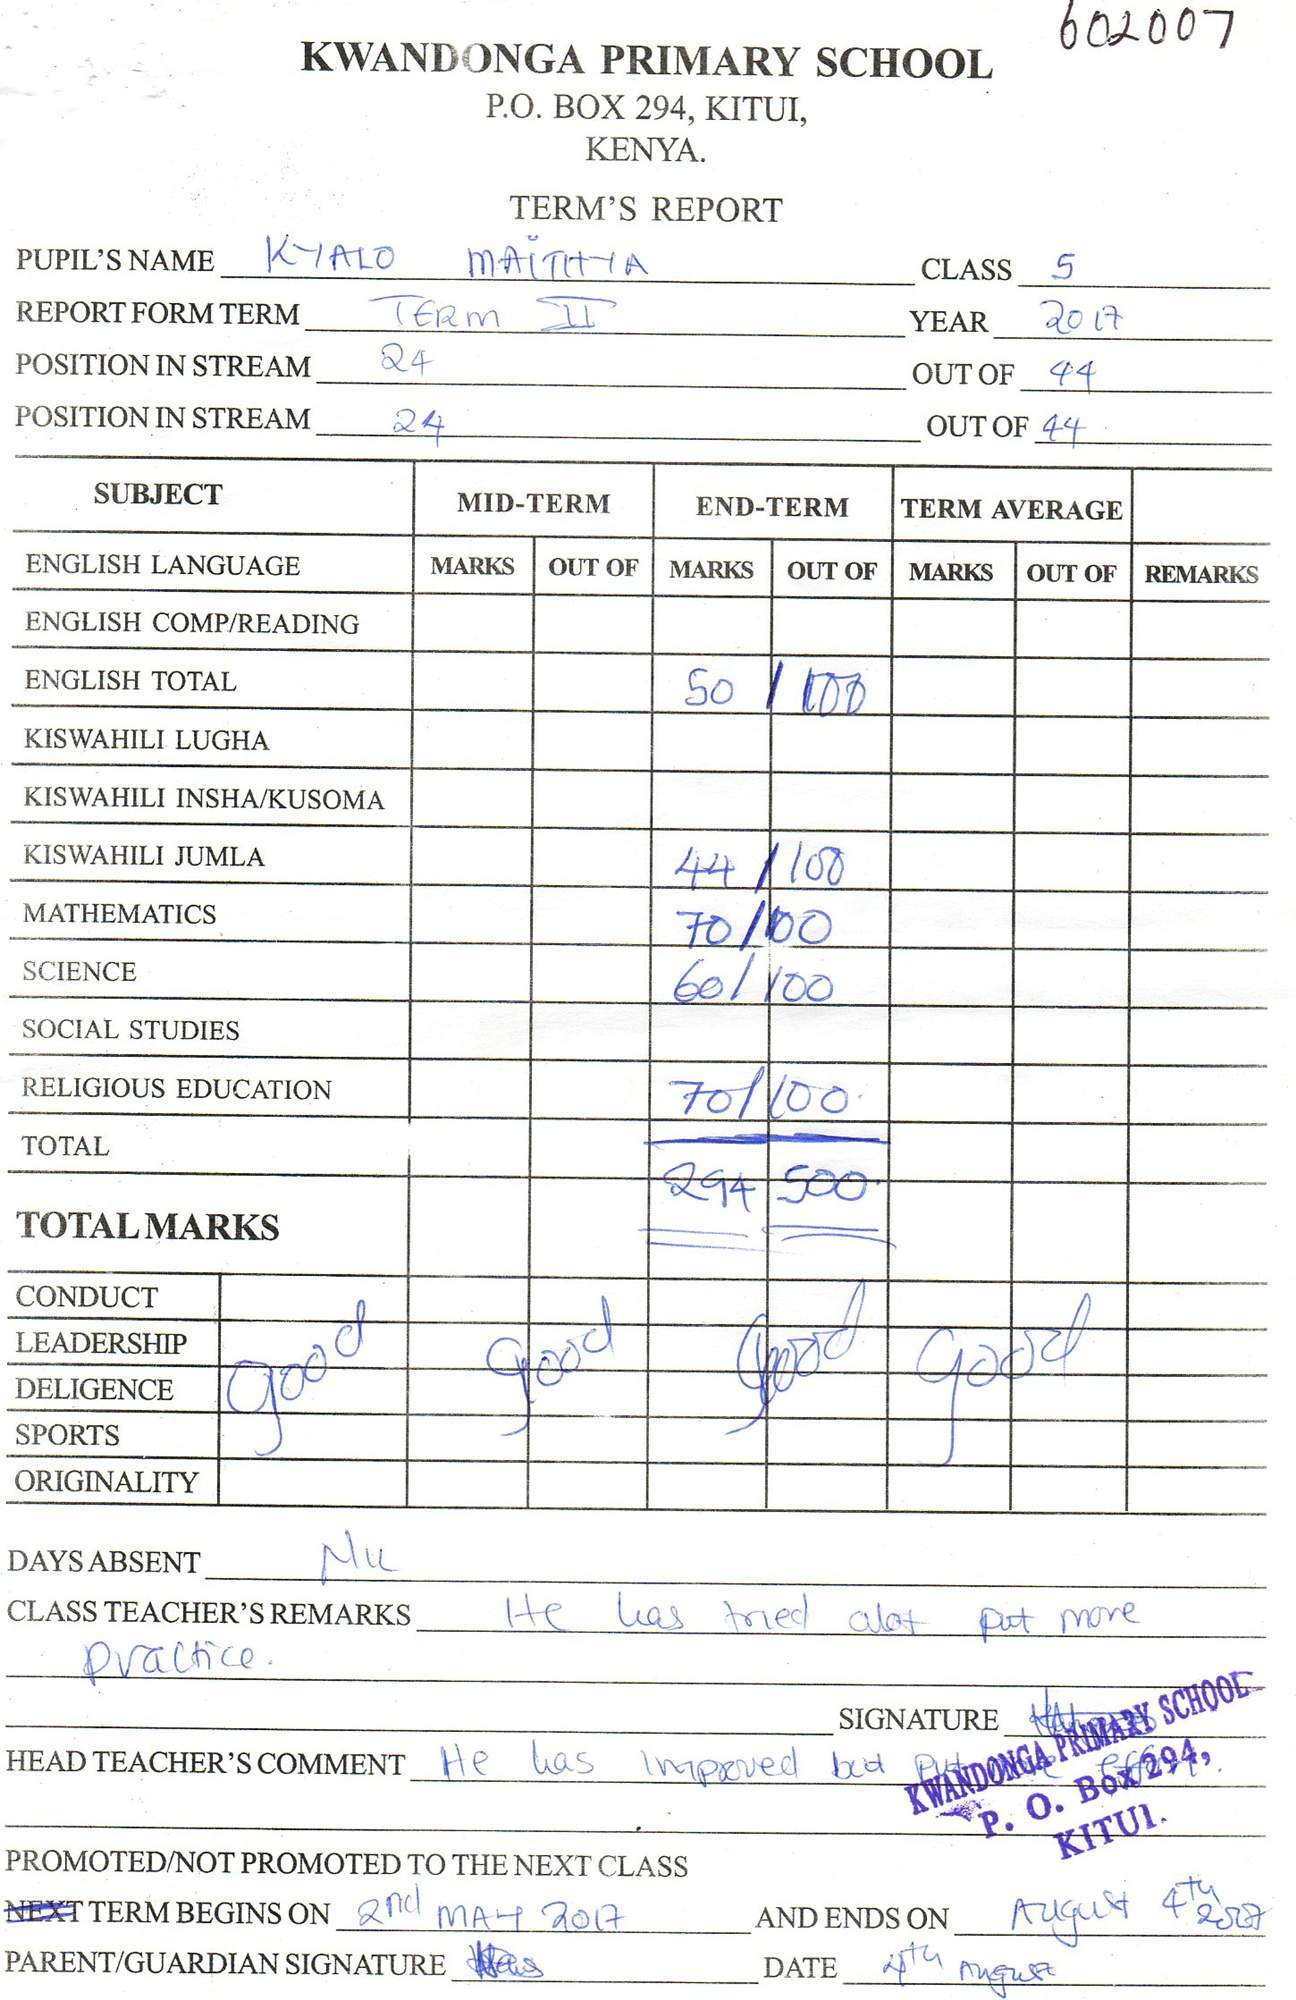 602007
KWANDONGA PRIMARY SCHOOL
P.O. BOX 294, KITUI,
KENYA.
TERM'S REPORT
PUPIL'S NAME KYALO MAITHYA CLASS 5
REPORT FORM TERM TERM II YEAR 2017
POSITION IN STREAM 24 OUT OF 44
POSITION IN STREAM 24 OUT OF 44
SUBJECT MID-TERM END-TERM TERM AVERAGE
ENGLISH LANGUAGE MARKS OUT OF MARKS OUT OF MARKS OUT OF REMARKS
ENGLISH COMP/READING
ENGLISH TOTAL 50 / 100
KISWAHILI LUGHA
KISWAHILI INSHA/KUSOMA
KISWAHILI JUMLA 44 / 100
MATHEMATICS 70/100
SCIENCE 60/100
SOCIAL STUDIES
RELIGIOUS EDUCATION 70/100
TOTAL
294 500
TOTAL MARKS
CONDUCT
LEADERSHIP good good good good
DELIGENCE
SPORTS
ORIGINALITY
DAYS ABSENT NIL
CLASS TEACHER'S REMARKS He has tried alot put more
practice.
SIGNATURE
HEAD TEACHER'S COMMENT He has improved but put effort.
KWANDONGA PRIMARY SCHOOL
P. O. Box 294,
KITUI.
PROMOTED/NOT PROMOTED TO THE NEXT CLASS
NEXT TERM BEGINS ON 2nd MAY 2017 AND ENDS ON August 4th 2017
PARENT/GUARDIAN SIGNATURE DATE 4th August